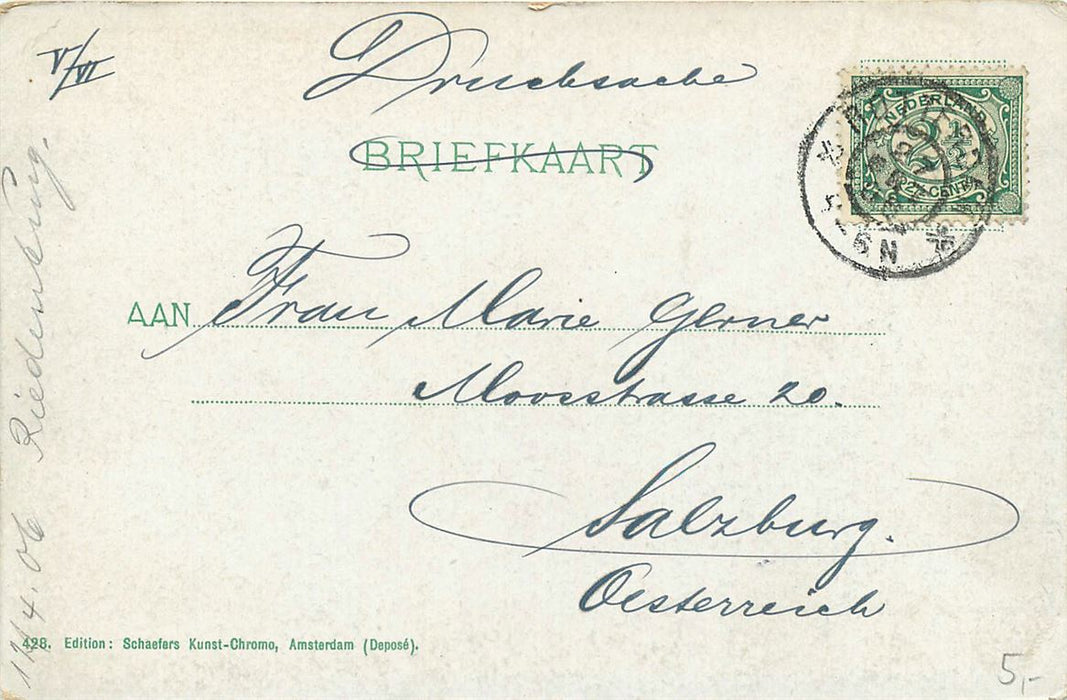 V/VI
Drucksache
BRIEFKAART
NEDERLAND
2 1/2
2½ CENT
5-6N
AAN Frau Marie Gerner
Moosstrasse 20.
Salzburg.
Oesterreich
428. Edition: Schaefers Kunst-Chromo, Amsterdam (Deposé).
5,-
Riedenburg.